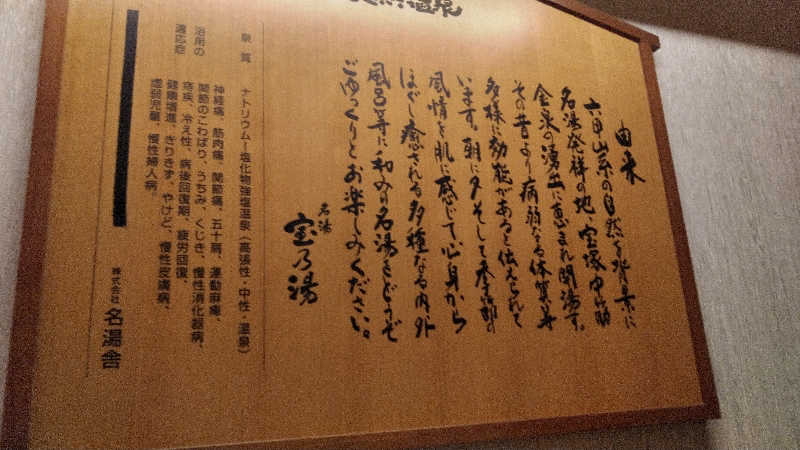 温泉
由来
六甲山系の自然を背景に
名湯発祥の地、宝塚中筋
金泉の湧出に恵まれ開湯す。
その昔より病弱なる体質等
多様に効能があると伝えられて
います。朝に夕そして季節の
風情を肌に感じて心身から
ほぐし癒される多種なる内外
風呂等に和みの名湯をどうぞ
ごゆっくりとお楽しみください。
名湯
宝乃湯
泉質 ナトリウム-塩化物強塩温泉(高張性・中性・温泉)
浴用の
適応症
神経痛、筋肉痛、関節痛、五十肩、運動麻痺、
関節のこわばり、うちみ、くじき、慢性消化器病、
痔疾、冷え性、病後回復期、疲労回復、
健康増進、きりきず、やけど、慢性皮膚病、
虚弱児童、慢性婦人病。
株式会社 名湯舎